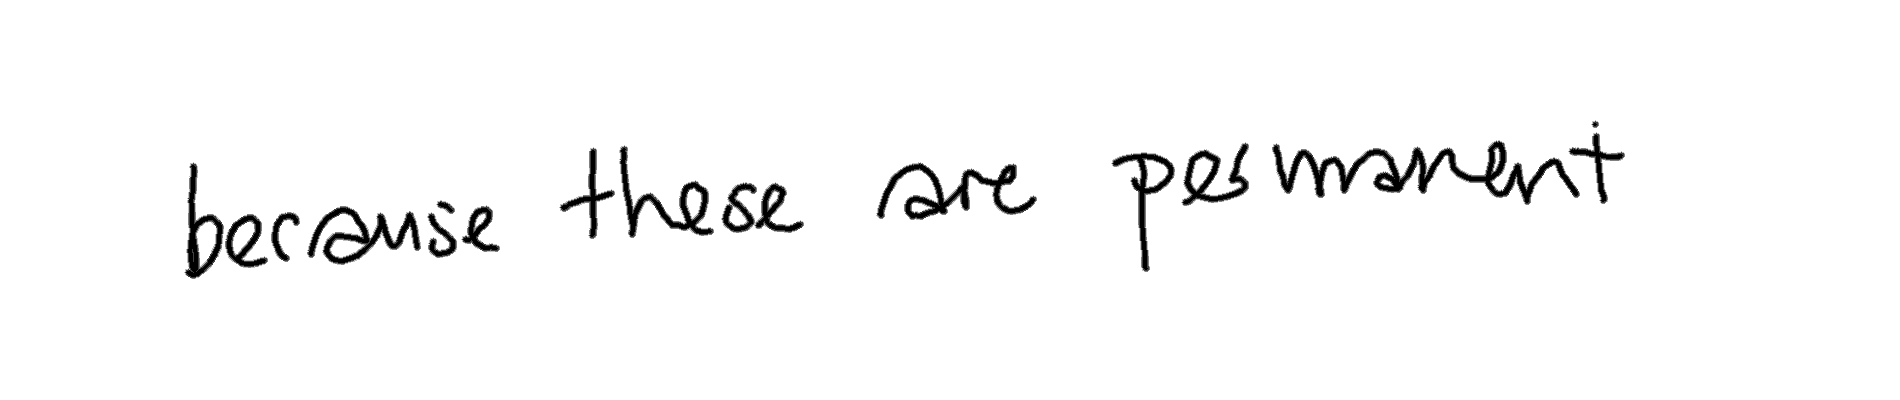 because these are permanent